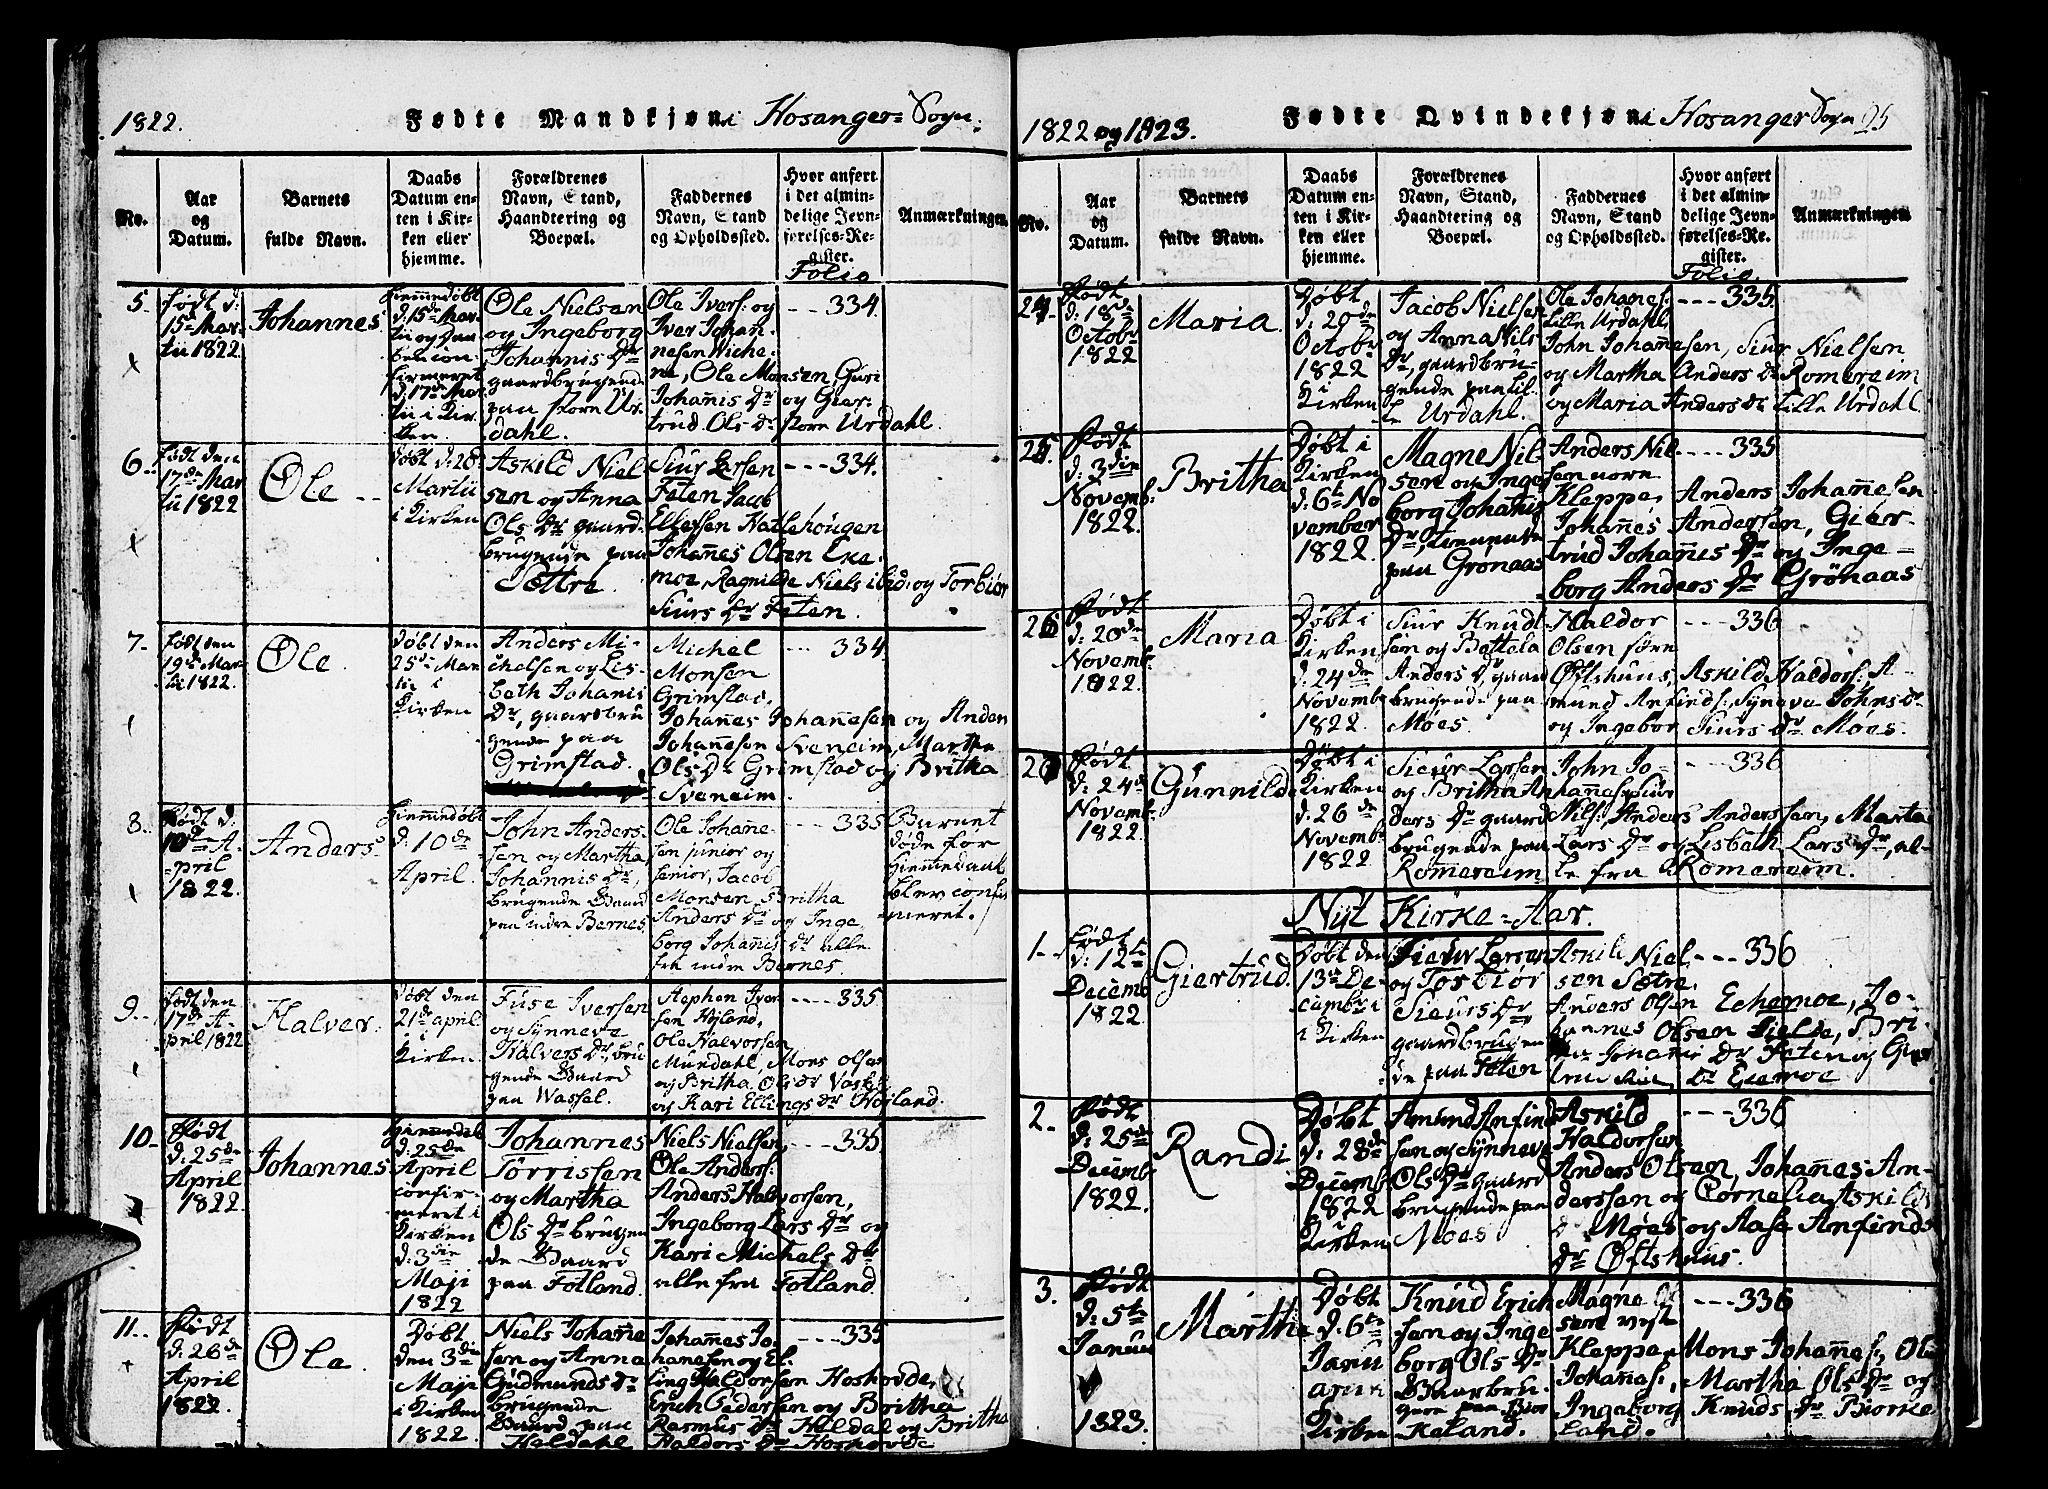 1822. Fødte Mandkjøn i Hosanger Sogn.
No.
Aar
og
Datum.
Barnets
fulde Navn.
Daabs
Datum en-
ten i Kir-
ken eller
hjemme.
Forældrenes
Navn, Stand,
Haandtering og
Boepæl.
Faddernes
Navn, Stand
og Opholdssted.
Hvor anført
i det almin-
delige Jevn-
førelses-Re-
gister.
Folio
Anmærkninger.
5.
Født d:
15de Mar-
tii 1822
Johannes
Hiemmedøbt
d: 15de Mar
tii og daa
ben con
firmeret
d. 17de Mar
tii i Kir-
ken.
Ole Nielsen
og Ingeborg
Johannis Dr
gaardbrugende
paa store Ur-
dahl.
Ole Ivers: og
Iver Johan-
nesen Niche-
ne, Ole Monsen, Guri
Johannis Dr og Gier-
trud Ols Dr store Urdahl.
---334.
6.
Født den
17de Mar
tii 1822
Ole
Døbt d: 28
Martii
i Kirken
Askild Niel
sen og Anna
Ols Dr gaard-
brugende paa
Sættre
Siur Larsen
Feten Jacob
Ellefsen Hatlehougen
Johannes Olsen Eke-
moe, Ragnilde Niels ibid: og Torbiør
Siurs Dr Feten.
---334.
7.
Født den
19de Mar-
tii 1822.
Ole
Døbt den
25de Mar
tii i
Kirken
Anders Mi-
chelsen og Lis-
beth Johanis
Dr, gaardbru
gende paa
Grimstad.
Michel
Monsen
Grimstad,
Johannes Johannesen og Anden
Johannesen Sveneim, Martha
Ols Dr Grimstad og Britha
Sveneim
---334.
8.
Født d.
10de A-
pril
1822.
Anders
Hiemmedøbt
d: 10de
April.
John Anders-
sen og Martha
Johannis Dr,
brugende Gaard
paa indre Bernes
Ole Johanne-
sen junior og
senior, Jacob
Monsen, Britha
Anders Dr og Inge
borg Johanis Dr alle
fra indre Bernes.
---335
Barnet
døde før
Hiemmedaab
blev confir
meret.
9.
Født den
17de A-
pril 1822
Halver.
Døbt den
21de april
i
Kirken
Fuse Iversen
og Synneve
Halvers Dr, bru
gende Gaard
paa Wassel.
Stephen Iver
sen Hyland,
Ole Halvorsen
Mundahl, Mons Olsen
og Britha
og Kari Ellings Dr Hoyland.
---335.
10.
Født
d: 25de
April
1822.
Johannes
Hiemmedøbt
d: 25de
April
confir-
meret i
Kirken
d: 3die
Maji
1822
Johannes
Tørrissen
og Martha
Ols Dr brugen
de Gaard
paa Fotland.
Niels Nielsen,
Ole Anders:
Anders Halvorsen,
Ingeborg Lars Dr og
Kari Michels Dr
alle fra Fotland.
---335.
11.
Født
d: 26de
April
1822.
Ole.
Døbt
den 3die
Maji
i Kirken
1822.
Niels Johanne
sen og Anna
Gudmunds Dr
brugende
Gaard paa
Haldahl
Johannes Jo-
hanesen og El-
ling Haldorsen Hoshovde,
Erich Pedersen og Britha
Rasmus Dr Haldal og Britha
Haldors Dr Hoshovde
---335
1822 og 1823. Fødte Qvindekjøn i Hosanger Sogn 25
No.
Aar
og
Datum.
Barnets
fulde Navn.
Daabs
Datum en-
ten i Kir-
ken eller
hjemme.
Forældrenes
Navn, Stand,
Haandtering og
Boepæl.
Faddernes
Navn, Stand
og Opholdssted.
Hvor anført
i det almin-
delige Jevn-
førelses-Re-
gister.
Folio.
Anmærkningen
24.
Født
d: 18de
Octobr
1822
Maria.
Døbt
d: 20de
Octobr
1822
i
Kirken
Jacob Nielsen
og Anna Nils
Dr, gaardbru-
gende paa lil-
le Urdahl.
Ole Johanes:
Lille Urdahl,
John Johannesen, Siur Nielsen
og Martha Anders Dr Romereim
og Maria Anders Dr Lille Urdahl.
---335
25.
Født
d: 3die
Novemb:
1822.
Britha
Døbt i
Kirken
d: 6te No
vember
1822.
Magne Nil-
sen og Inge
borg Johanis
Dr, tienende
paa Grønaas
Anders Nil-
sen nore
Kleppe, Anders Johannesen
Johannes Andersen, Gier-
trud Johannis Dr og Inge-
borg Anders Dr Grönaas
---335
26
Født
d: 20de
Novemb:
1822.
Maria
Døbt i
Kirken
d: 24de
Novembr
1822.
Siur Knud-
sen og Bottela
Anders Dr gaard
brugende paa
Møes.
Haldor
Olsen søre
Øftshuus, Askild Haldors: A-
mund Anfinds: Synova Johns Dr
og Ingebor Siurs Dr Møes.
---336
27
Født
d: 24de
Novemb-
1822.
Gunnilde
Døbt i
Kirken
d: 26de
Novemb-
1822
Sieur Larsen
og Britha An
ders Dr gaard
brugende paa
Romereim
John Jo-
hannes Siur
Nils: Anders Anderssen, Marta
Lars Dr og Lisbath Lars Dr, al-
le fra Romereim.
---336
Nyt Kirke-Aar.
1.
Født
d: 12te
Decemb
1822.
Giertrud
Døbt den
13de De-
cembr i
Kirken
Sieur Larsen
og Torbiör
Sieurs Dr,
gaardbrugen
de paa Feten
Askild Niel
sen Sætre,
Anders Olsen Echemoe, Jo-
hannes Olsen Fielde, Bri-
tha Johanis Dr Feten og Gier
Dr Ekemoe
---336
2.
Født
d: 25de
Decemb
1822.
Randi
Døbt
d: 28de
Decemb
1822
Kirken
Amund Anfind
sen og Synneve
Ols Dr gaard
brugende paa
Møes
Askild
Haldorsen
Anders Olsen, Johannes An-
derssen og Cornelia Askilds
Dr Møes og Aase Anfinds
Dr Øftshuus.
---336
3.
Født
d: 5te
Januarii
1823.
Martha
Døbt
d. 6te
Janu
arii
Kirken
Knud Erich
sen og Inge
borg Ols Dr
Gaardbru-
gere paa Bior
keland.
Magne
sen vest
Kleppe, Mons Johannes:, Ole
Johannes:, Martha Ols Dr og
Ingeborg Knuds Dr Biorke
land.
---336